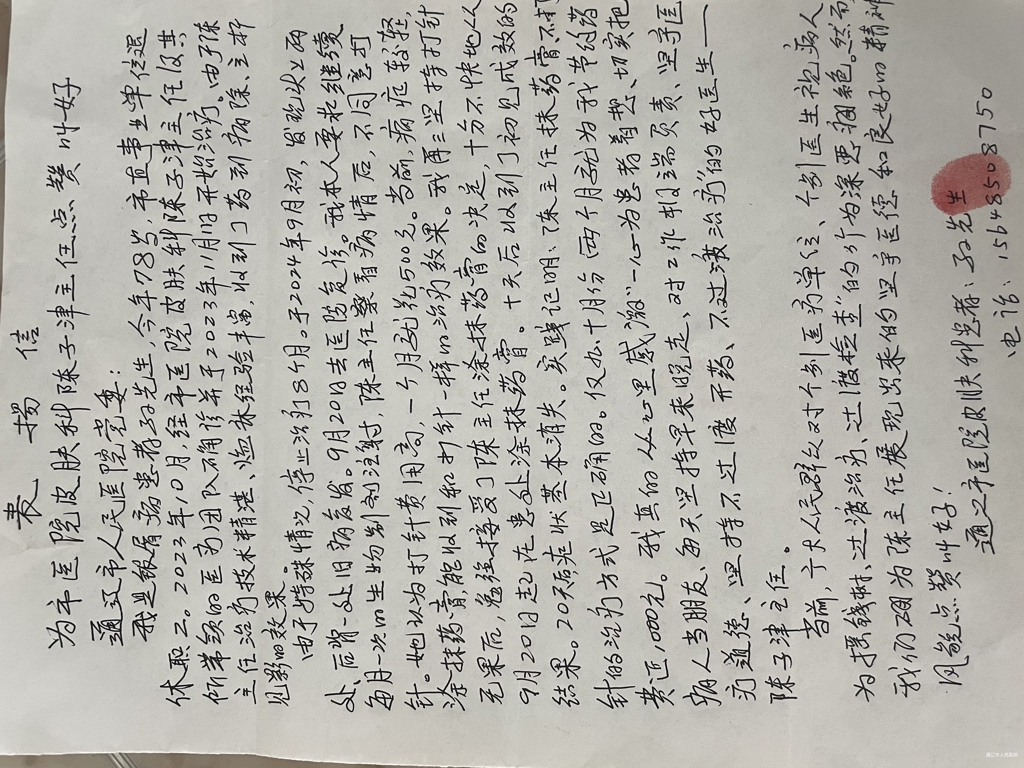 表 揚 信
为市医院皮肤科陈子津主任点赞叫好
通辽市人民医院党委：
我是银屑病患者孙先生，今年78岁，市直事业单位退
休职工。2023年10月，经市医院皮肤科陈子津主任及其
所带领的医疗团队确诊并于2023年11月1日开始治疗。由于陈
主任治疗技术精湛、临床经验丰富，收到了药到病除、立杆
见影的效果。
由于特殊情况，停止治疗8个月。于2024年9月初，发现头上两
处、后背一处旧病复发。9月20日去医院复诊。我本人要求继续
每月一次的生物制剂注射，陈主任察看病情后，不同意打
针。她认为打针费用高，一个月就花500元。当前，病症较轻，
涂抹药膏，能收到和打针一样的治疗效果。我再三坚持打针
无果后，勉强接受了陈主任涂抹药膏的决定，十分不快地从
9月20日起在患处涂抹药膏。十天后收到了初见成效的
结果。20天后症状基本消失。实践证明：陈主任抹药膏不打
针的治疗方式是正确的。仅九、十月份两个月就为我节约药
费近1,000元。我真的从心里感激"一心为患者着想、切实把
病人当朋友、每天坚持早来晚走、对工作极端负责、坚守医
疗道德、坚持不过度开药、不过渡治疗"的好医生——
陈子津主任。
当前，广大人民群众对个别医疗单位、个别医生视病人
为摇钱树、过渡治疗、过度检查"的行为深恶痛绝。然而
我们硬为陈主任展现出来的坚守医德和良好的精神
风貌点赞叫好！
通辽市医院皮肤科患者：孙先生
电话：15648508750
通辽市人民医院